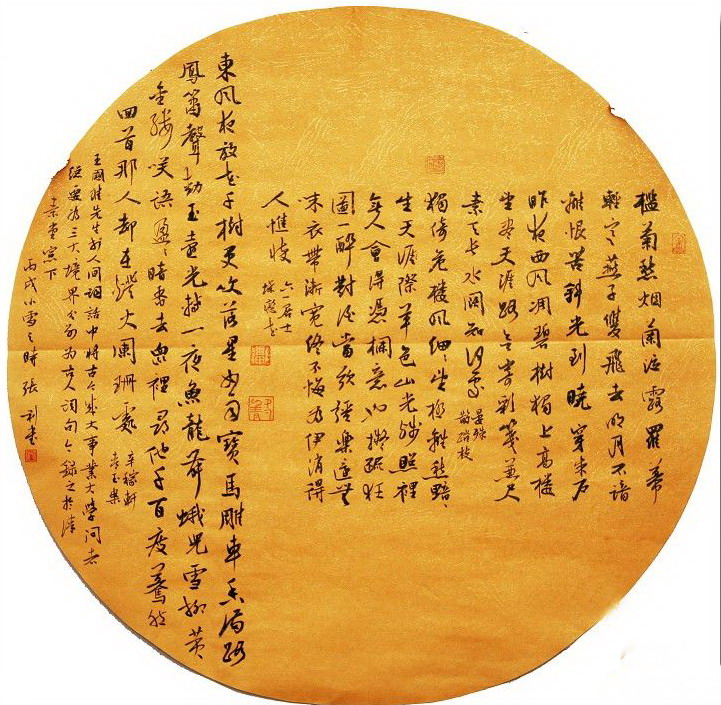 檻菊愁烟蘭泣露羅幕
輕寒燕子雙飛去明月不諳
離恨苦斜光到曉穿朱户
昨夜西風凋碧樹獨上高樓
望盡天涯路欲寄彩箋兼尺
素長水闊知何處
晏殊
鵲踏枝
獨倚危樓風細細望極離愁黯黯
生天涯際草色山光殘照裡
無人會得憑欄意也擬疏狂
圖一醉對酒當歌強樂還無
味衣帶漸寬終不悔為伊消得
人憔悴
六一居士
蝶戀花
東風夜放花千樹更吹落星如雨寶馬雕車香滿路
鳳簫聲動玉壺光轉一夜魚龍舞蛾兒雪柳黄
金縷笑語盈盈暗香去衆裡尋他千百度驀然
回首那人却在燈火闌珊處
辛稼軒
青玉案
王國維先生於人間詞話中將古今成大事業大學問者
經歷為三大境界分别為古人詞句今録之於津
素堂窗下
丙戌小雪之時張利書